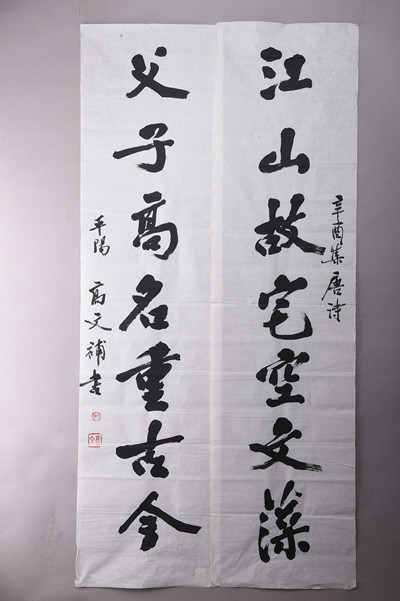 辛酉集唐詩
江山故宅空文藻
父子高名重古今
平陽 高文補書